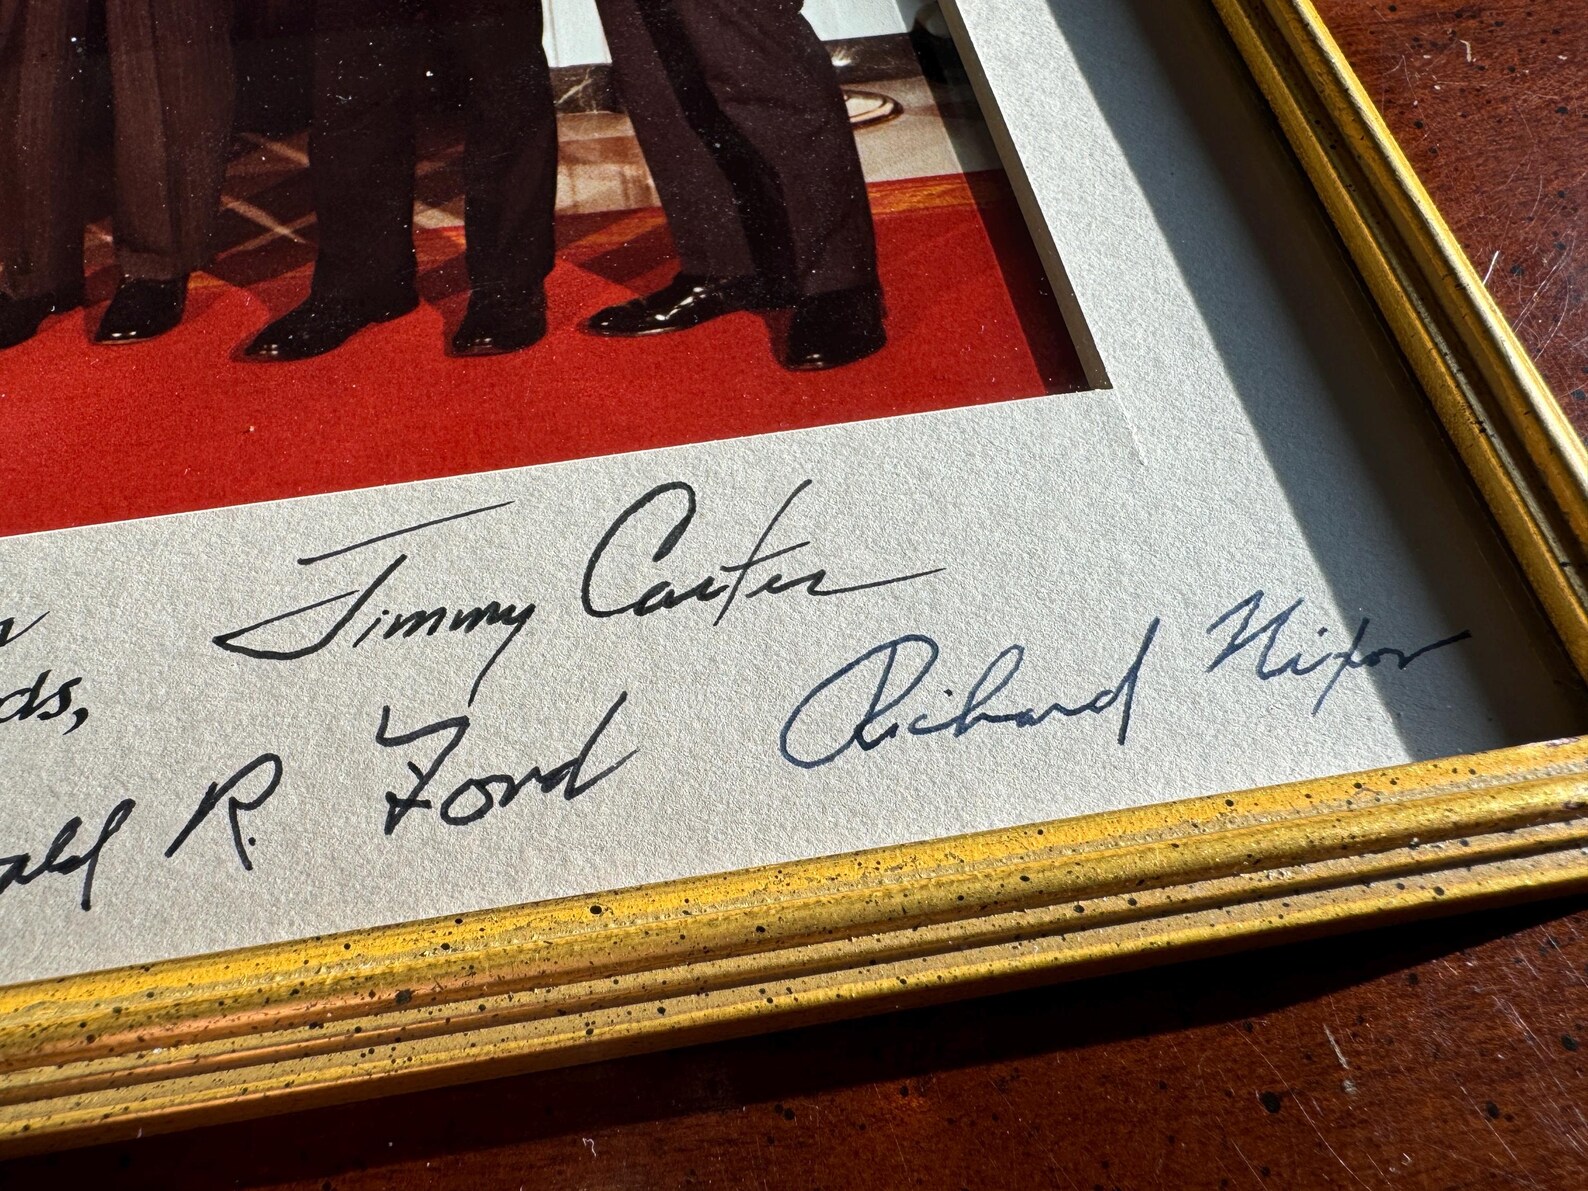 Jimmy Carter
ds,
ald R. Ford
Richard Nixon